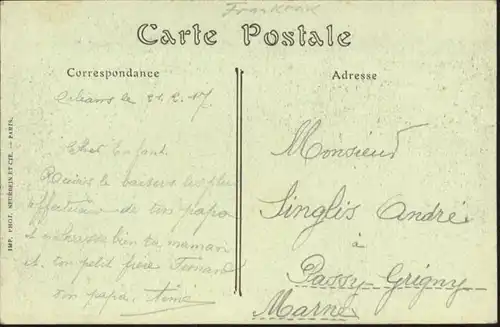 Frankreich
Carte Postale
Correspondance
Adresse
IMP. PHOT. NEURDEIN ET CIE. — PARIS.
Orléans le 21. 2. 17
Cher Enfant
Reçois le baisers les plus
affectueux de ton papa
et embrasse bien ta maman
et ton petit frère Fernand
ton papa. Aimé
Monsieur
Singlis André
à
Passy-Grigny
Marne